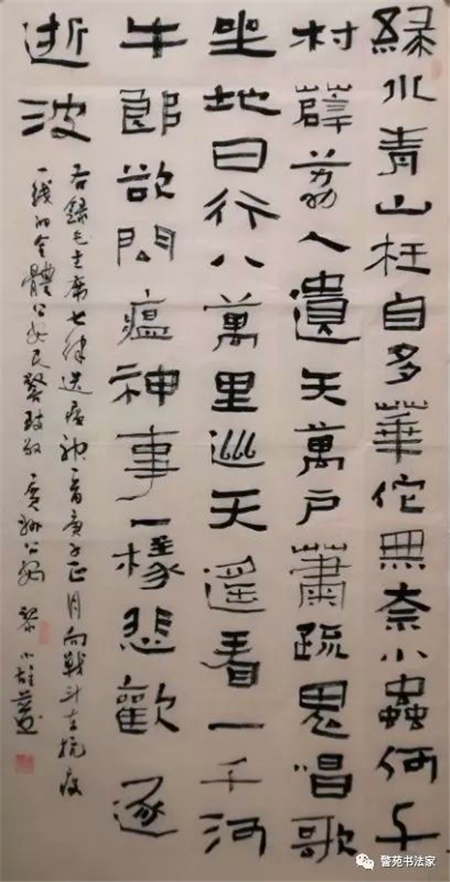 綠水青山枉自多華佗無奈小蟲何千
村薜荔人遺矢萬戶蕭疏鬼唱歌
坐地日行八萬里巡天遙看一千河
牛郎欲問瘟神事一樣悲歡逐
逝波
右錄毛主席七律送瘟神一首庚子正月向戰斗在抗疫
一线的全體公安民警致敬 州公安 黎小雄
警苑书法家